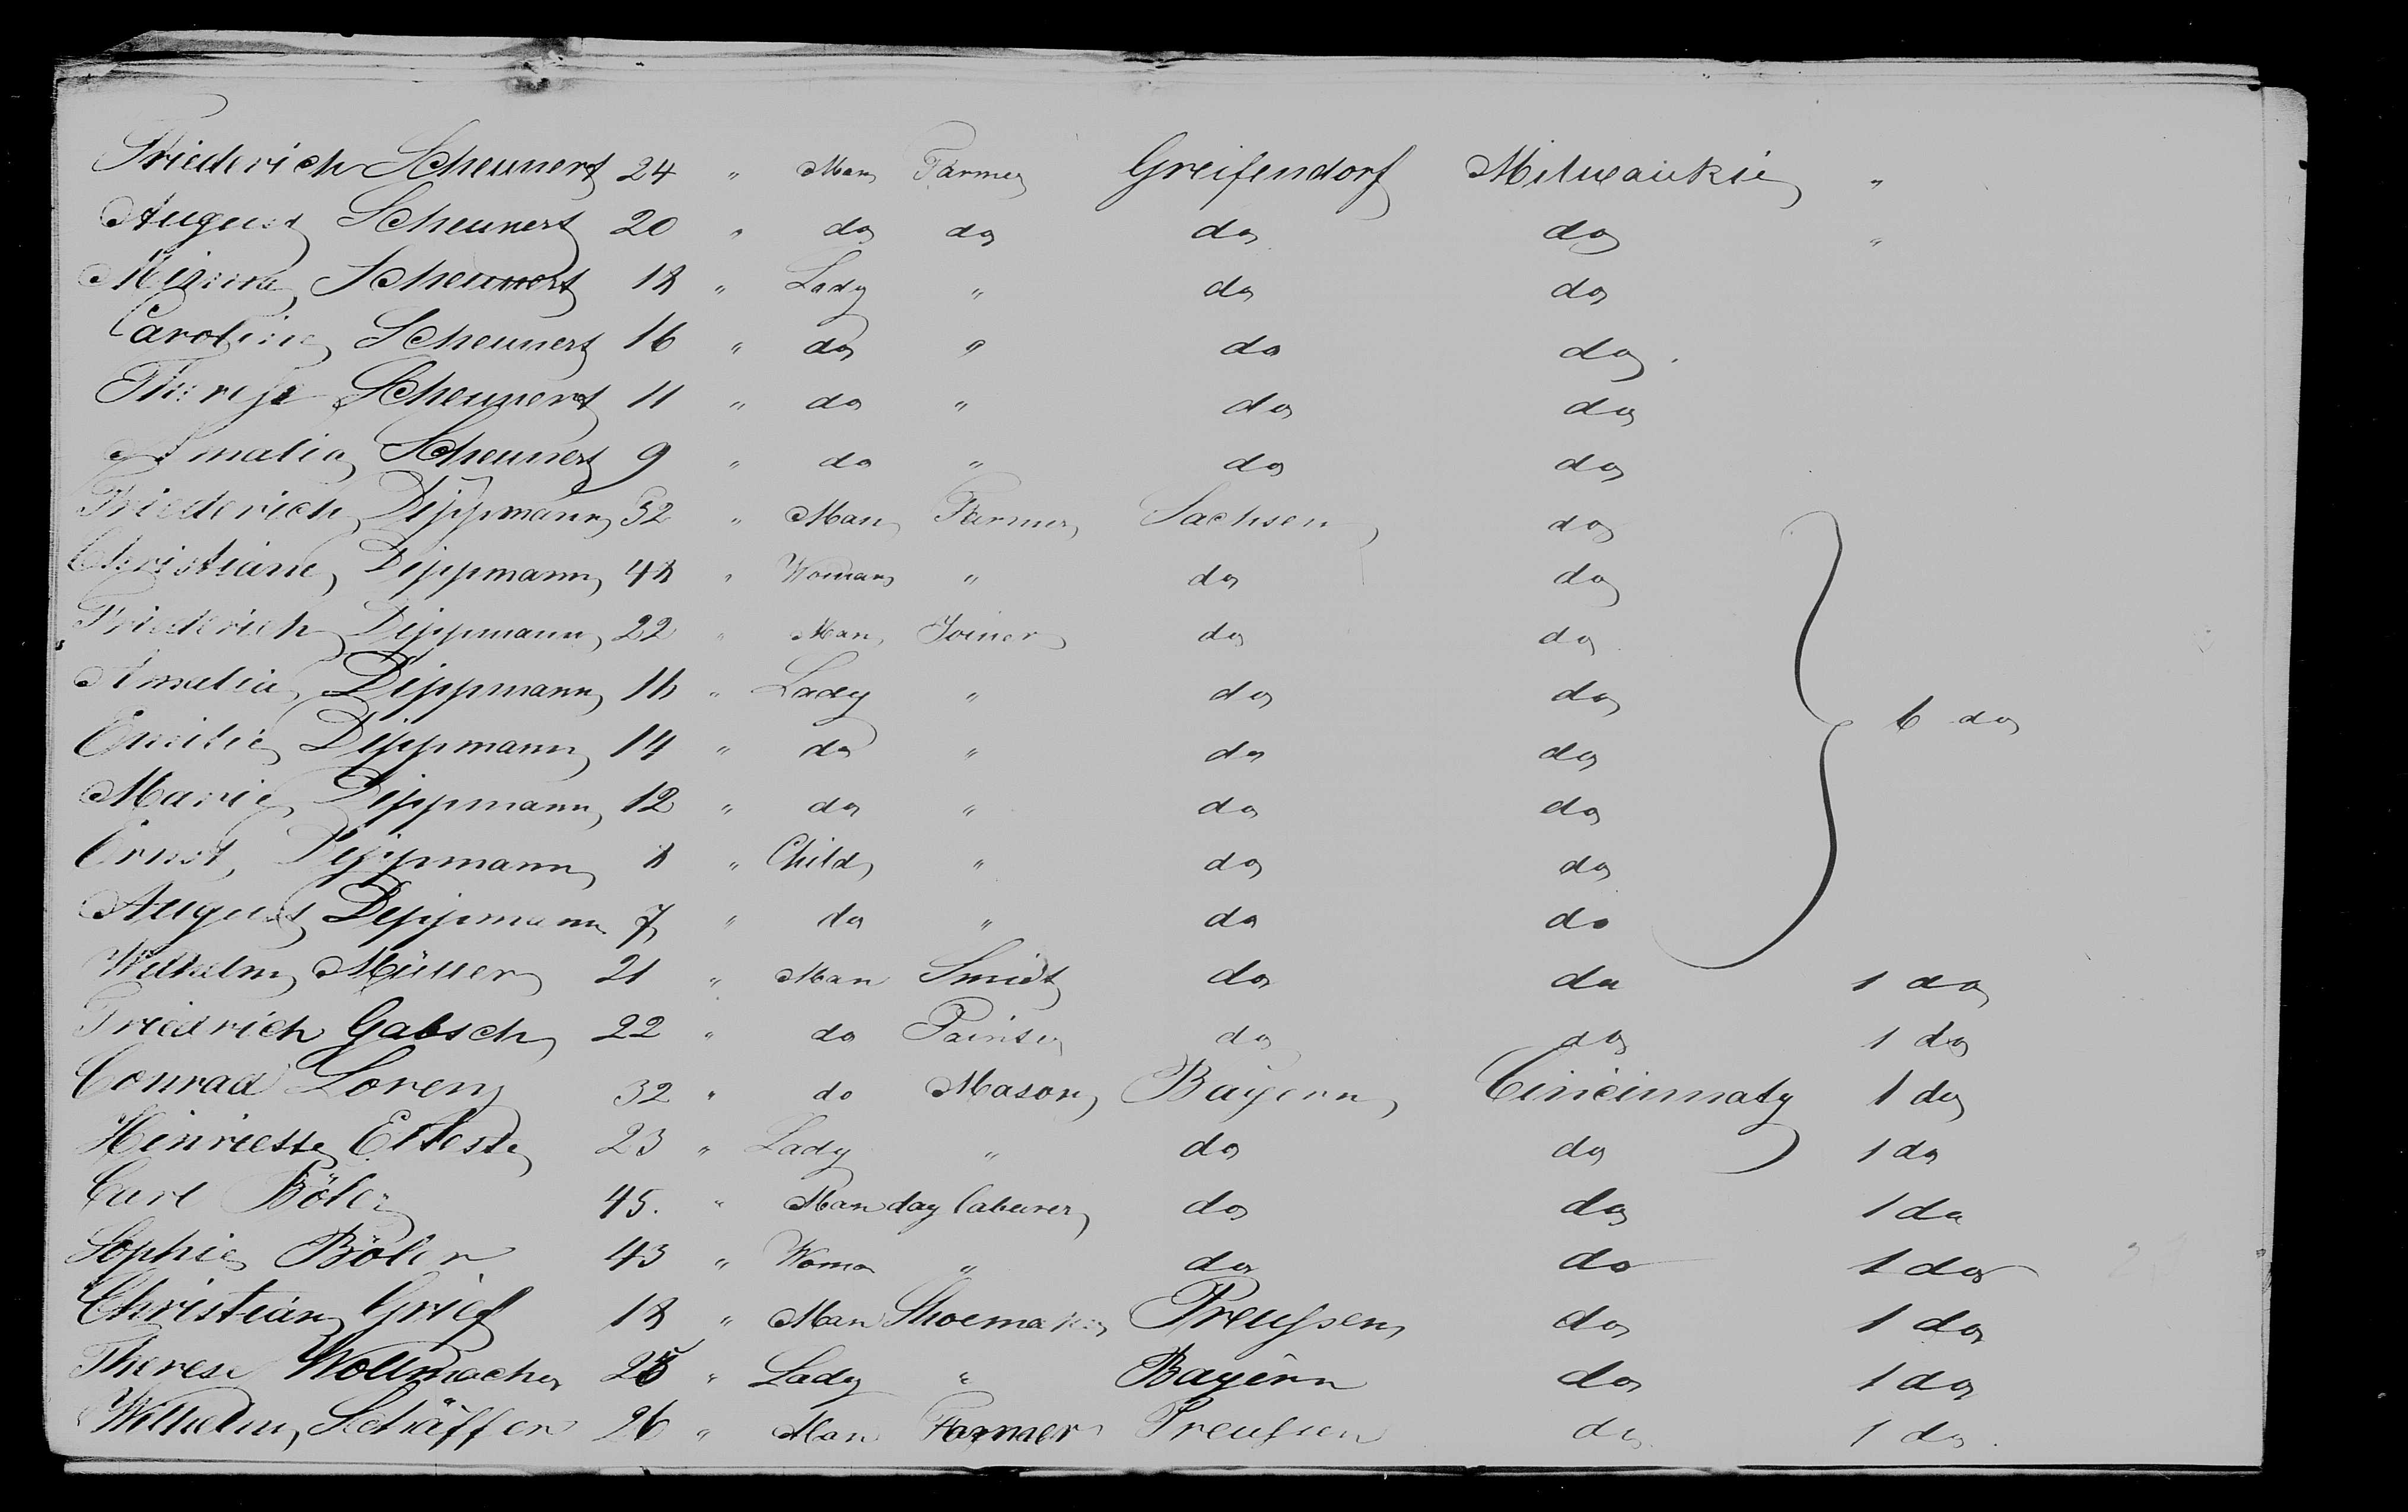 Friederich Scheunert 24 " Man Farmer Greifendorf Milwaukie "
August Scheunert 20 " do do do do "
Minna Scheunert 18 " Lady " do do
Caroline Scheunert 16 " do " do do
Therese Scheunert 11 " do " do do
Amalia Scheunert 9 " do " do do
Friederich Dippmann 52 " Man Farmer Sachsen do
Christiane Dippmann 48 " Woman " do do
Friederich Dippmann 22 " Man Joiner do do
Amalia Dippmann 16 " Lady " do do
6 do
Emilie Dippmann 14 " do " do do
Marie Dippmann 12 " do " do do
Ernst Dippmann 8 " Child " do do
August Dippmann 7 " do " do do
Wilhelm Müller 21 " Man Smidt do do 1 do
Friedrich Gabsch 22 " do Painter do do 1 do
Conrad Lorenz 32 " do Mason Bayern Cincinnaty 1 do
Henriette 23 " Lady " do do 1 do
Carl Böler 45. " Man day laburer do do 1 do
Sophie Böler 43 " Woman " do do 1 do
Christian Grief 18 " Man Shoemaker Preußen do 1 do
Therese Wollmacher " Lady " Bayern do 1 do
Wilhelm Schäffer 26 " Man Farmer Preußen do 1 do